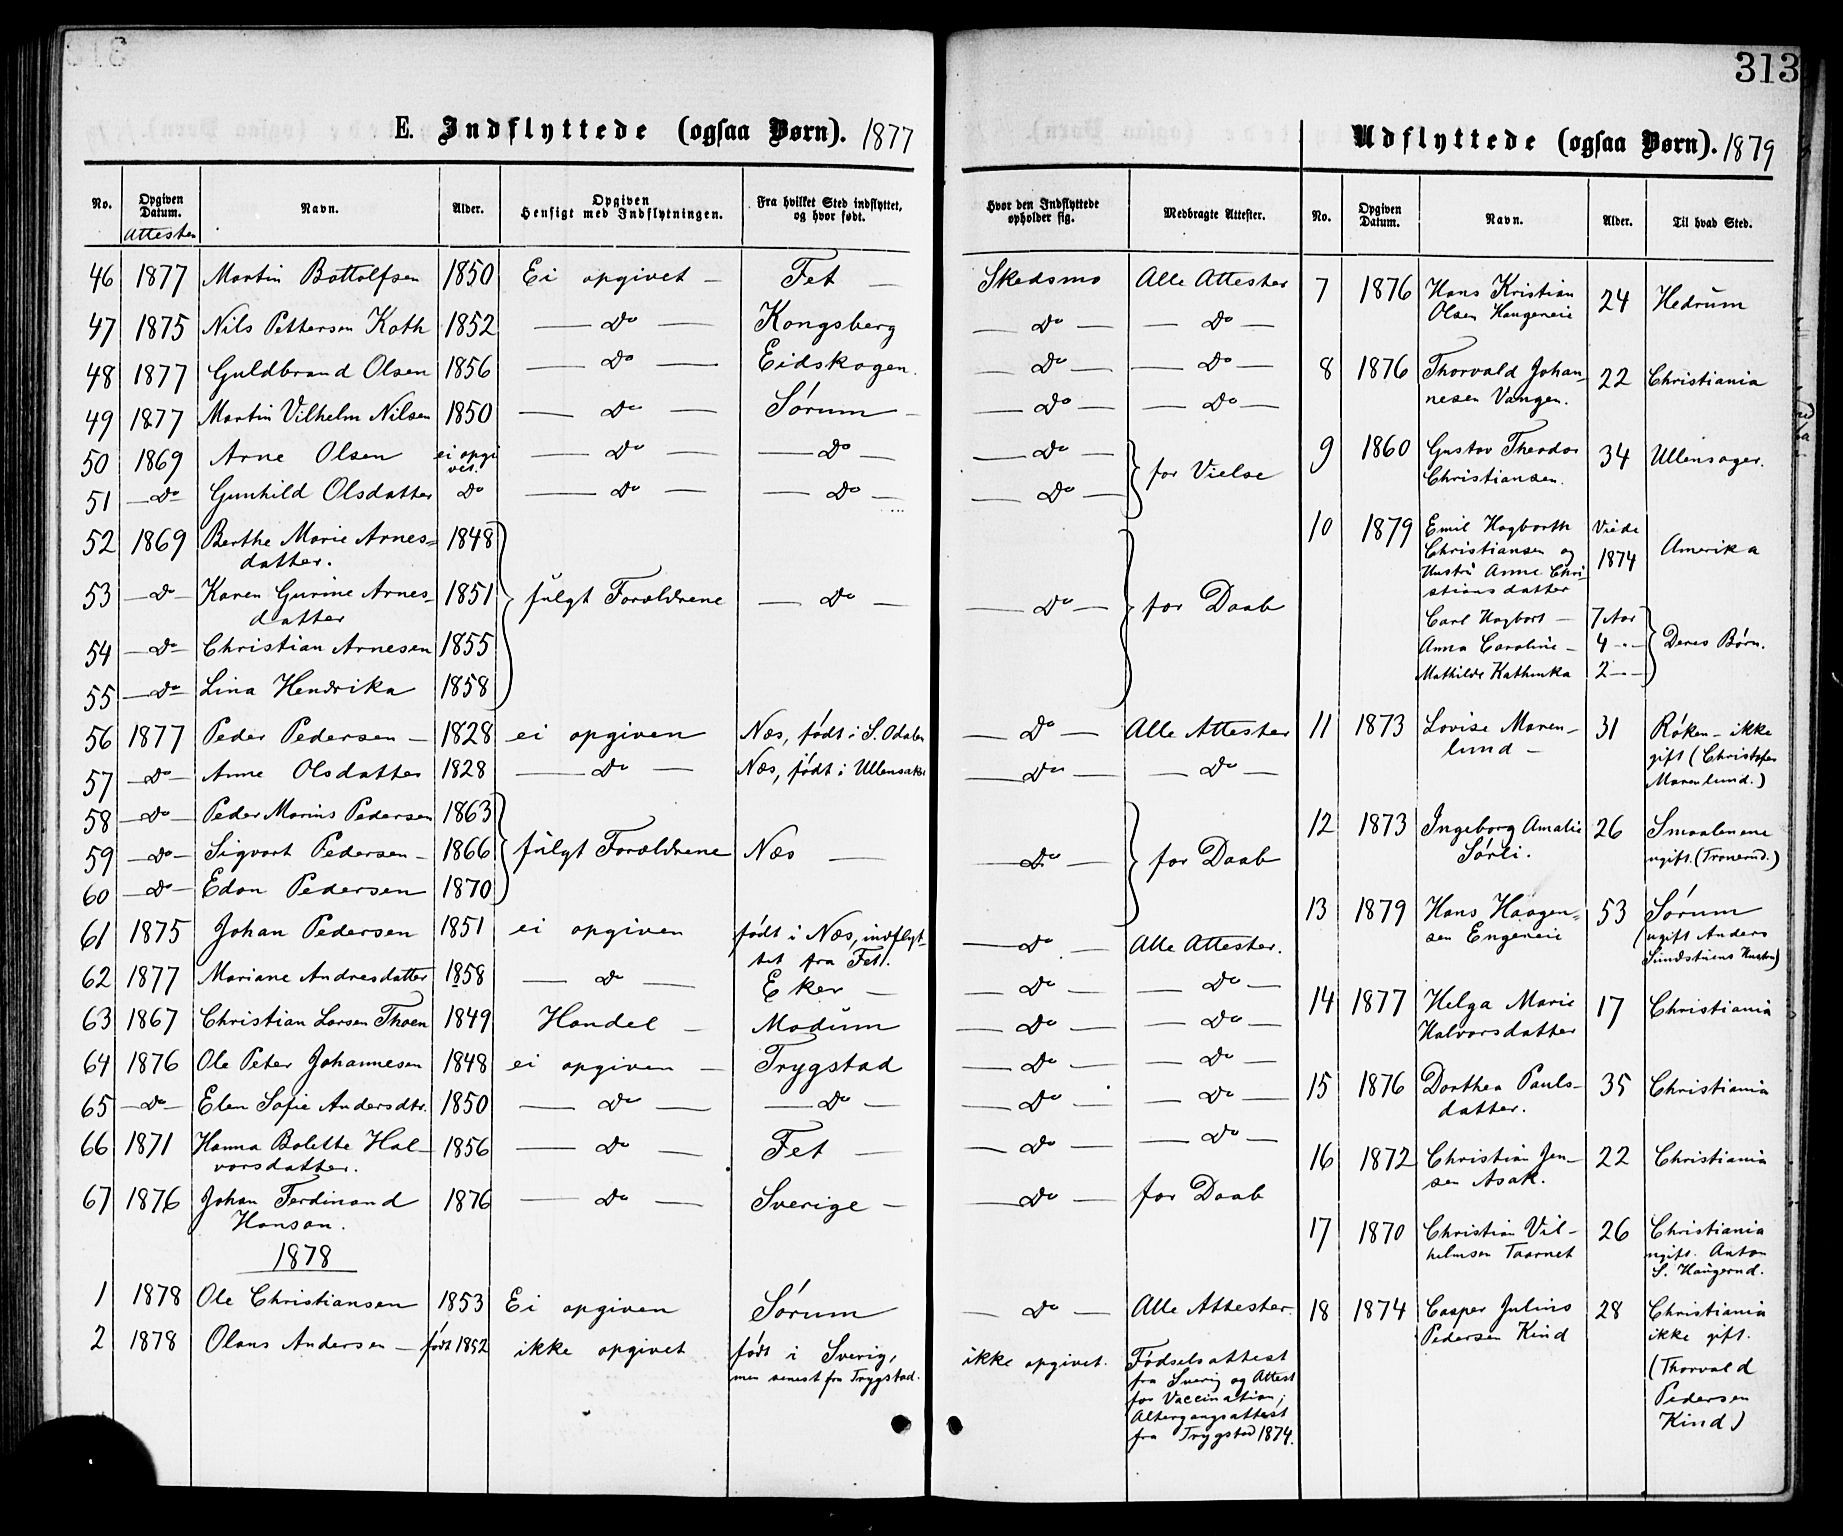 313
E. Indflyttede (ogsaa Børn). 1877
No. Opgiven Datum. Attester Navn. Alder. Opgiven Hensigt med Indflytningen. Fra hvilket Sted indflyttet, og hvor født. Hvor den Indflyttede opholder sig. Medbragte Attester.
46 1877 Martin Bottolfsen 1850 Ei opgivet – Fet — Skedsmo Alle Attester
47 1875 Nils Pettersen Koth 1852 — Do — Kongsberg — Do — — Do —
48 1877 Guldbrand Olsen 1856 — Do — Eidskogen. — Do — — Do —
49 1877 Martin Vilhelm Nilsen 1850 — Do — Sørum – — Do — — Do —
50 1869 Arne Olsen ei opgivet. — Do — — Do — — Do — } for Vielse
51 — Do Gunhild Olsdatter Do — Do — — Do — — Do —
52 1869 Berthe Marie Arnes=
datter. 1848
53 — Do — Karen Gurine Arnes-
datter 1851 } fulgt Forældrene — Do — — Do — } for Daab
54 — Do – Christian Arnesen 1855
55 — Do – Lina Hendrika 1858
56 1877 Peder Pedersen – 1828 ei opgiven Næs, født i S. Odalen — Do — Alle Attester
57 — Do – Anne Olsdatter 1828 — Do — Næs, født i Ullensaker — Do — — Do —
58 — Do – Peder Marius Pedersen 1863
59 — Do – Sigvart Pedersen – 1866 } fulgt Forældrene Næs — — Do — } for Daab
60 — Do – Edon Pedersen 1870
61 1875 Johan Pedersen 1851 ei opgiven født i Næs, indflyt-
tet fra Fet. — Do — Alle Attester.
62 1877 Mariane Andresdatter 1858 — Do — Eker – — Do — — Do —
63 1867 Christian Larsen Thoen 1849 Handel – Modum — Do — — Do —
64 1876 Ole Peter Johannesen 1848 ei opgiven – Trygstad — Do — — Do —
65 — Do – Elen Sofie Andersdtr. 1850 — Do — — Do — — Do — — Do —
66 1871 Hanna Bolette Hal-
vorsdatter. 1856 — Do — Fet — — Do — — Do —
67 1876 Johan Ferdinand
Hanson. 1876 — Do — Sverige – — Do — for Daab
1878
1 1878 Ole Christiansen 1853 Ei opgiven Sørum — Do — Alle Attester.
2 1878 Olaus Andersen – født 1852 ikke opgivet født i Sverig,
men senest fra Trygstad. ikke opgivet. Fødselsattest
fra Sverig og Attest
for Vaccination;
Altergangsattest
fra Trygstad 1874.
Udflyttede (ogsaa Børn). 1879
No. Opgiven Datum. Navn. Alder. Til hvad Sted.
7 1876 Hans Kristian
Olsen Haugeneie 24 Hedrum
8 1876 Thorvald Johan-
nesen Vangen. 22 Christiania
9 1860 Gustav Theodor
Christiansen. 34 Ullensager.
10 1879 Emil Hagbarth
Christiansen og
Hustru Anne Chri-
stiansdatter Viede
1874 Amerika
Carl Hagbart – 7 Aar
Anna Caroline – 4 -"- } Deres Børn.
Mathilde Kathinka 2 – -
11 1873 Lovise Maren-
lund – 31 Røken – ikke
gift (Christofer
Marenlund.)
12 1873 Ingeborg Amalie
Sørli. 26 Smaalenene
ugift. (Tronerud.)
13 1879 Hans Haagen=
sen Engeneie 53 Sørum
(ugift Anders
Sundstuens Hustru)
14 1877 Helga Marie
Halvorsdatter 17 Christiania
15 1876 Dorthea Pauls-
datter. 35 Christiania
16 1872 Christian Jen-
sen Asak. 22 Christiania
17 1870 Christian Vil-
helmsen Taarnet 26 Christiania
ugift. Anton
S. Haugerud.
18 1874 Casper Julius
Pedersen Kind 28 Christiania
ikke gift.
(Thorvald
Pedersen
Kind)